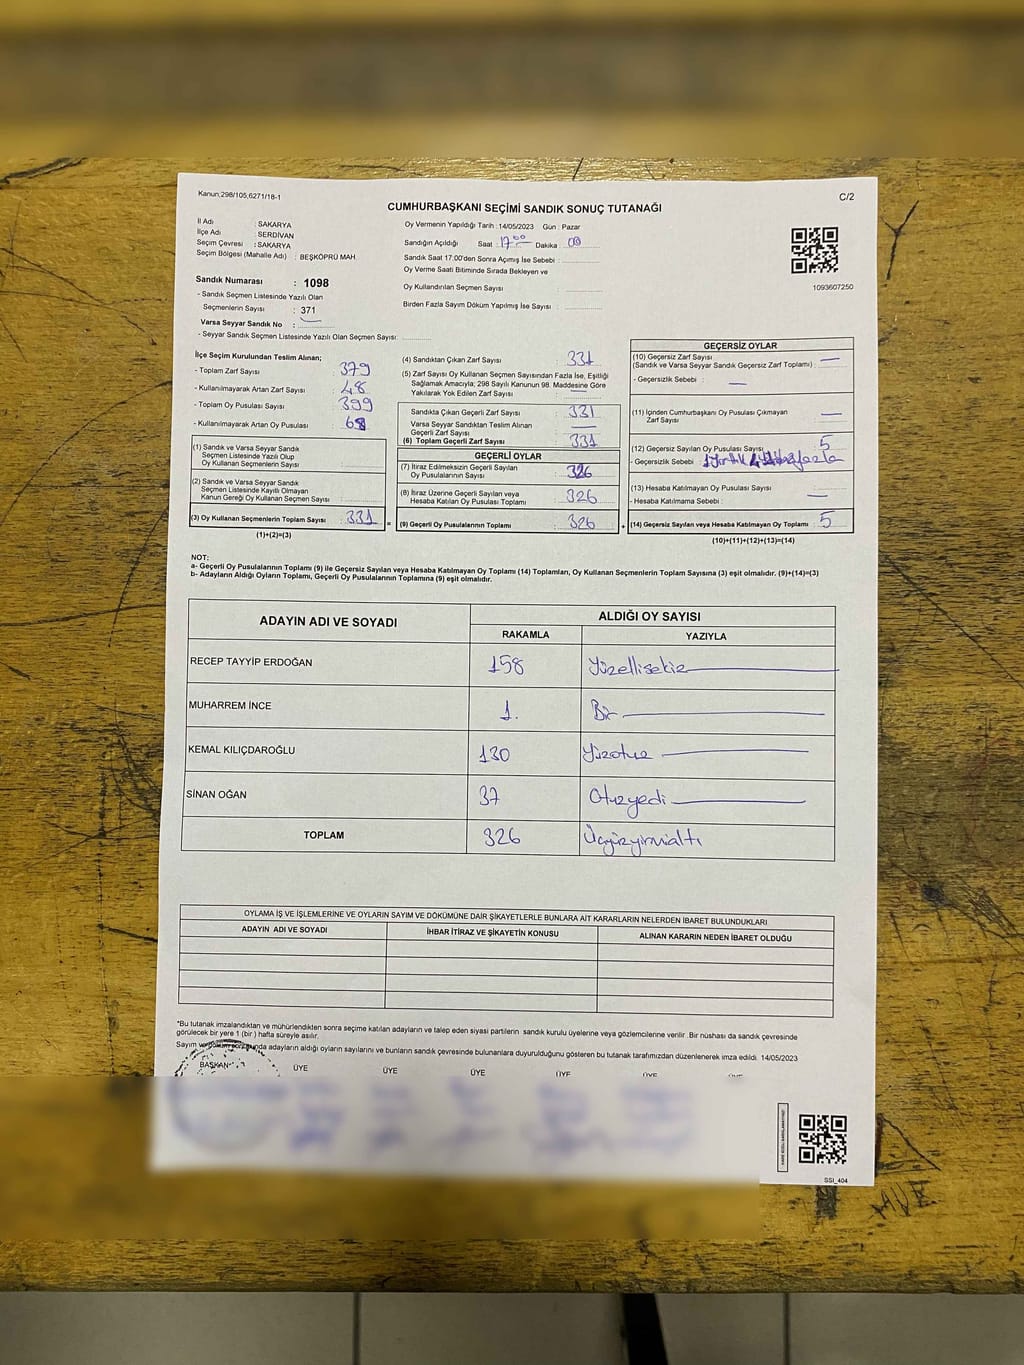 Kanun,298/105,6271/18-1
C/2
CUMHURBAŞKANI SEÇİMİ SANDIK SONUÇ TUTANAĞI
İl Adı : SAKARYA
İlçe Adı : SERDİVAN
Seçim Çevresi : SAKARYA
Seçim Bölgesi (Mahalle Adı) : BEŞKÖPRÜ MAH.
Sandık Numarası : 1098
- Sandık Seçmen Listesinde Yazılı Olan
Seçmenlerin Sayısı : 371
Varsa Seyyar Sandık No :
- Seyyar Sandık Seçmen Listesinde Yazılı Olan Seçmen Sayısı:
Oy Vermenin Yapıldığı Tarih : 14/05/2023 Gün : Pazar
Sandığın Açıldığı Saat 17:00 Dakika 00
Sandık Saat 17.00'den Sonra Açımış İse Sebebi :
Oy Verme Saati Bitiminde Sırada Bekleyen ve
Oy Kullandırılan Seçmen Sayısı :
Birden Fazla Sayım Döküm Yapılmış İse Sayısı :
1093607250
İlçe Seçim Kurulundan Teslim Alınan;
- Toplam Zarf Sayısı : 379
- Kullanılmayarak Artan Zarf Sayısı : 48
- Toplam Oy Pusulası Sayısı : 399
- Kullanılmayarak Artan Oy Pusulası : 68
(1) Sandık ve Varsa Seyyar Sandık
Seçmen Listesinde Yazılı Olup
Oy Kullanan Seçmenlerin Sayısı :
(2) Sandık ve Varsa Seyyar Sandık
Seçmen Listesinde Kayıtlı Olmayan
Kanun Gereği Oy Kullanan Seçmen Sayısı :
(3) Oy Kullanan Seçmenlerin Toplam Sayısı : 331 =
(1)+(2)=(3)
(4) Sandıktan Çıkan Zarf Sayısı : 331
(5) Zarf Sayısı Oy Kullanan Seçmen Sayısından Fazla İse, Eşitliği
Sağlamak Amacıyla; 298 Sayılı Kanunun 98. Maddesine Göre
Yakılarak Yok Edilen Zarf Sayısı :
Sandıkta Çıkan Geçerli Zarf Sayısı : 331
Varsa Seyyar Sandıktan Teslim Alınan
Geçerli Zarf Sayısı :
(6) Toplam Geçerli Zarf Sayısı : 331
GEÇERLİ OYLAR
(7) İtiraz Edilmeksizin Geçerli Sayılan
Oy Pusulalarının Sayısı : 326
(8) İtiraz Üzerine Geçerli Sayılan veya
Hesaba Katılan Oy Pusulası Toplamı : 326
(9) Geçerli Oy Pusulalarının Toplamı : 326 +
GEÇERSİZ OYLAR
(10) Geçersiz Zarf Sayısı
(Sandık ve Varsa Seyyar Sandık Geçersiz Zarf Toplamı) : —
- Geçersizlik Sebebi : —
(11) İçinden Cumhurbaşkanı Oy Pusulası Çıkmayan
Zarf Sayısı : —
(12) Geçersiz Sayılan Oy Pusulası Sayısı : 5
- Geçersizlik Sebebi : 1 yırtık 4 fazla
(13) Hesaba Katılmayan Oy Pusulası Sayısı :
- Hesaba Katılmama Sebebi : —
(14) Geçersiz Sayılan veya Hesaba Katılmayan Oy Toplamı : 5
(10)+(11)+(12)+(13)=(14)
NOT:
a- Geçerli Oy Pusulalarının Toplamı (9) ile Geçersiz Sayılan veya Hesaba Katılmayan Oy Toplamı (14) Toplamları, Oy Kullanan Seçmenlerin Toplam Sayısına (3) eşit olmalıdır. (9)+(14)=(3)
b- Adayların Aldığı Oyların Toplamı, Geçerli Oy Pusulalarının Toplamına (9) eşit olmalıdır.
ADAYIN ADI VE SOYADI ALDIĞI OY SAYISI
RAKAMLA YAZIYLA
RECEP TAYYİP ERDOĞAN 158 Yüzellisekiz
MUHARREM İNCE 1. Bir
KEMAL KILIÇDAROĞLU 130 Yüzotuz
SİNAN OĞAN 37 Otuzyedi
TOPLAM 326 Üçyüzyirmialtı
OYLAMA İŞ VE İŞLEMLERİNE VE OYLARIN SAYIM VE DÖKÜMÜNE DAİR ŞİKAYETLERLE BUNLARA AİT KARARLARIN NELERDEN İBARET BULUNDUKLARI
ADAYIN ADI VE SOYADI İHBAR İTİRAZ VE ŞİKAYETİN KONUSU ALINAN KARARIN NEDEN İBARET OLDUĞU
*Bu tutanak imzalandıktan ve mühürlendikten sonra seçime katılan adayların ve talep eden siyasi partilerin sandık kurulu üyelerine veya gözlemcilerine verilir. Bir nüshası da sandık çevresinde
görülecek bir yere 1 (bir ) hafta süreyle asılır.
Sayım ve döküm sonucunda adayların aldığı oyların sayılarını ve bunların sandık çevresinde bulunanlara duyurulduğunu gösteren bu tutanak tarafımızdan düzenlenerek imza edildi. 14/05/2023
BAŞKAN ÜYE ÜYE ÜYE ÜYE ÜYE ÜYE
SSI_404
AVE